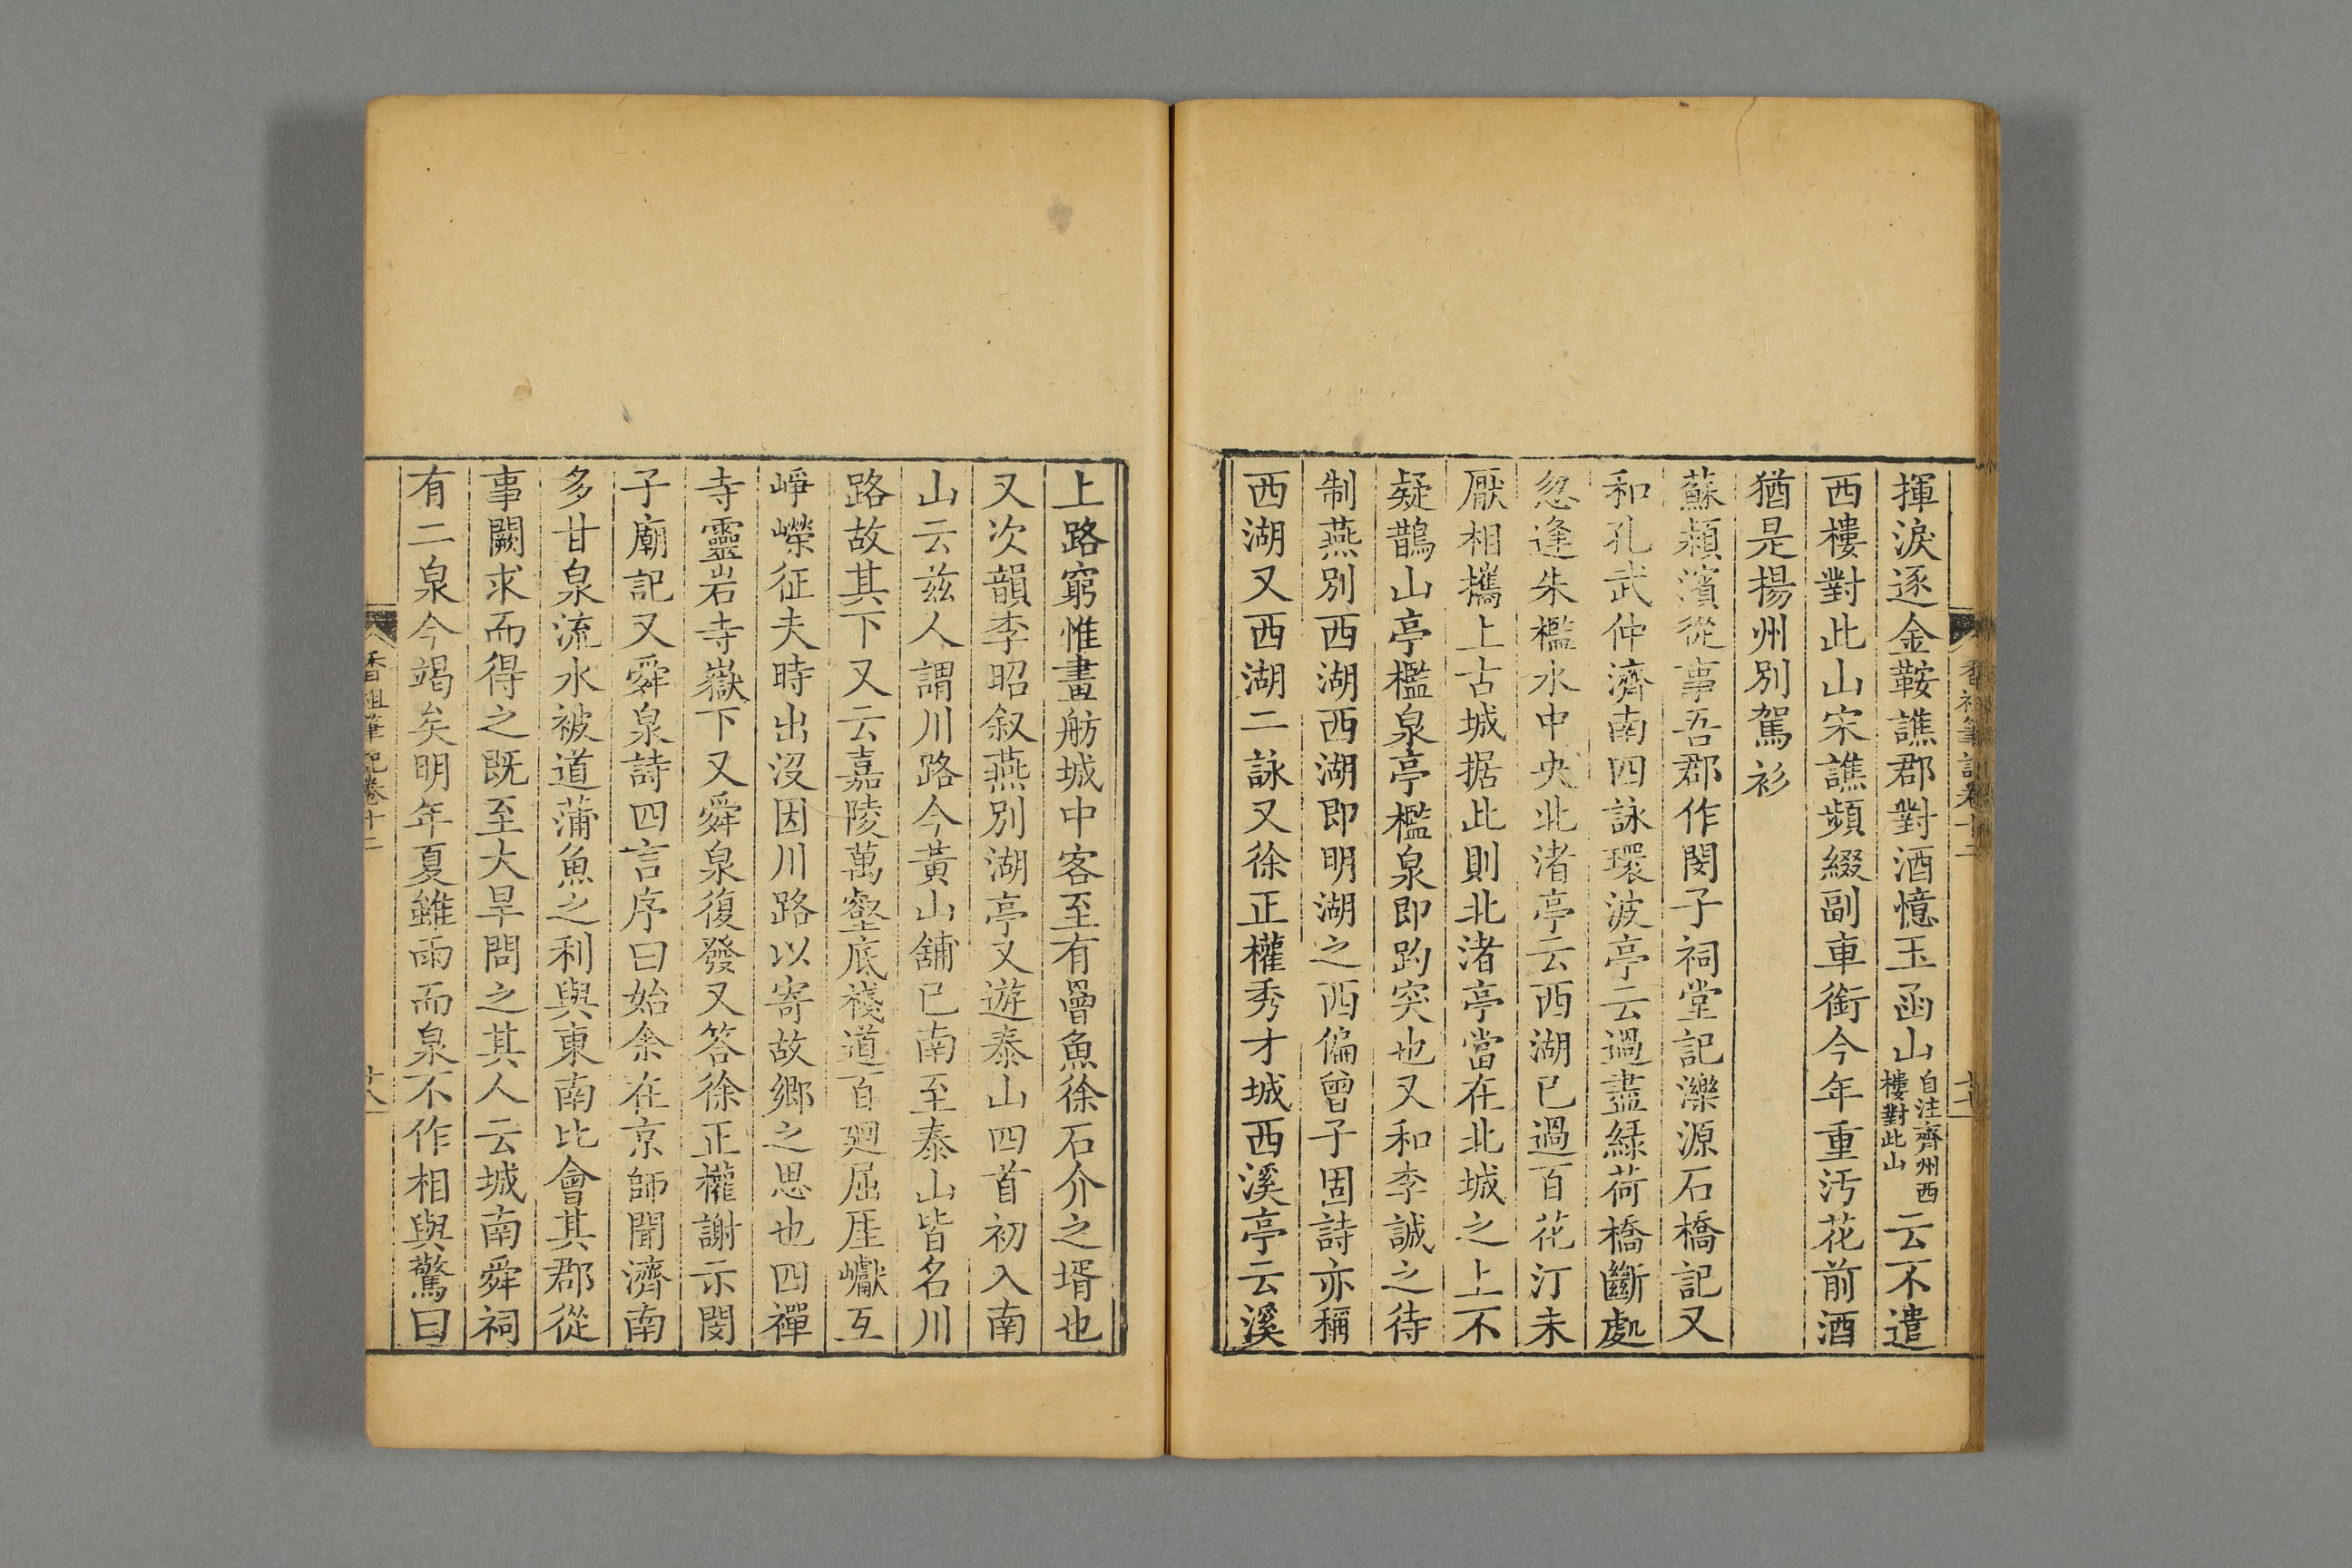 香祖筆記卷十二
揮淚逐金鞍譙郡對酒憶玉函山自注齊州西樓對此山云不遣
西樓對此山宋譙頻綴副車銜今年重污花前酒
猶是揚州別駕衫
蘇潁濱從事吾郡作閔子祠堂記濼源石橋記又
和孔武仲濟南四詠環波亭云過盡綠荷橋斷處
忽逢朱檻水中央北渚亭云西湖已過百花汀未
厭相攜上古城据此則北渚亭當在北城之上不
疑鵲山亭檻泉亭檻泉即趵突也又和李誠之待
制燕別西湖西湖即明湖之西偏曾子固詩亦稱
西湖又西湖二詠又徐正權秀才城西溪亭云溪
上路窮惟畫舫城中客至有罾魚徐石介之壻也
又次韻李昭叙燕別湖亭又遊泰山四首初入南
山云茲人謂川路今黃山舖已南至泰山皆名川
路故其下又云嘉陵萬壑底棧道百廻屈厓巘互
崢嶸征夫時出沒因川路以寄故鄉之思也四禪
寺靈岩寺嶽下又舜泉復發又答徐正權謝示閔
子廟記又舜泉詩四言序曰始余在京師聞濟南
多甘泉流水被道蒲魚之利與東南比會其郡從
事闕求而得之既至大旱問之其人云城南舜祠
有二泉今竭矣明年夏雖雨而泉不作相與驚曰
香祖筆記卷十二
十八